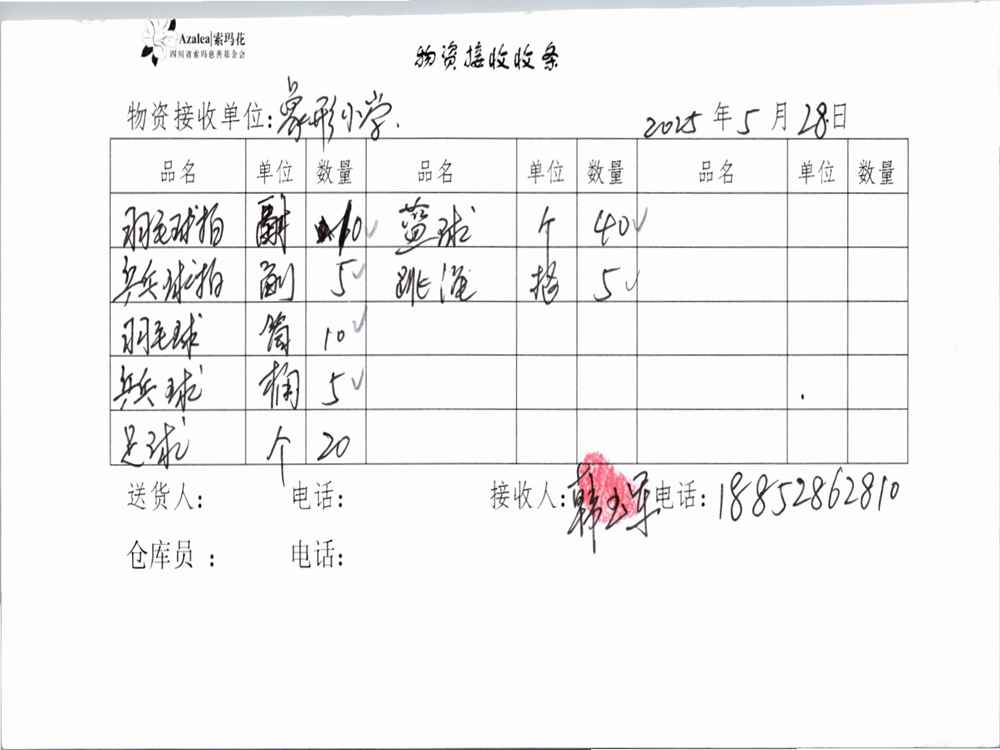 Azalea|索玛花
四川省索玛慈善基金会
物资接收收条
物资接收单位:象形小学. 2025年5月28日
品名 单位 数量 品名 单位 数量 品名 单位 数量
羽毛球拍 副 10 篮球 个 40
乒乓球拍 副 5 跳绳 5
羽毛球 筒 10
乒乓球 桶 5
足球 个 20
送货人: 电话: 接收人: 电话:18852862810
仓库员 : 电话: